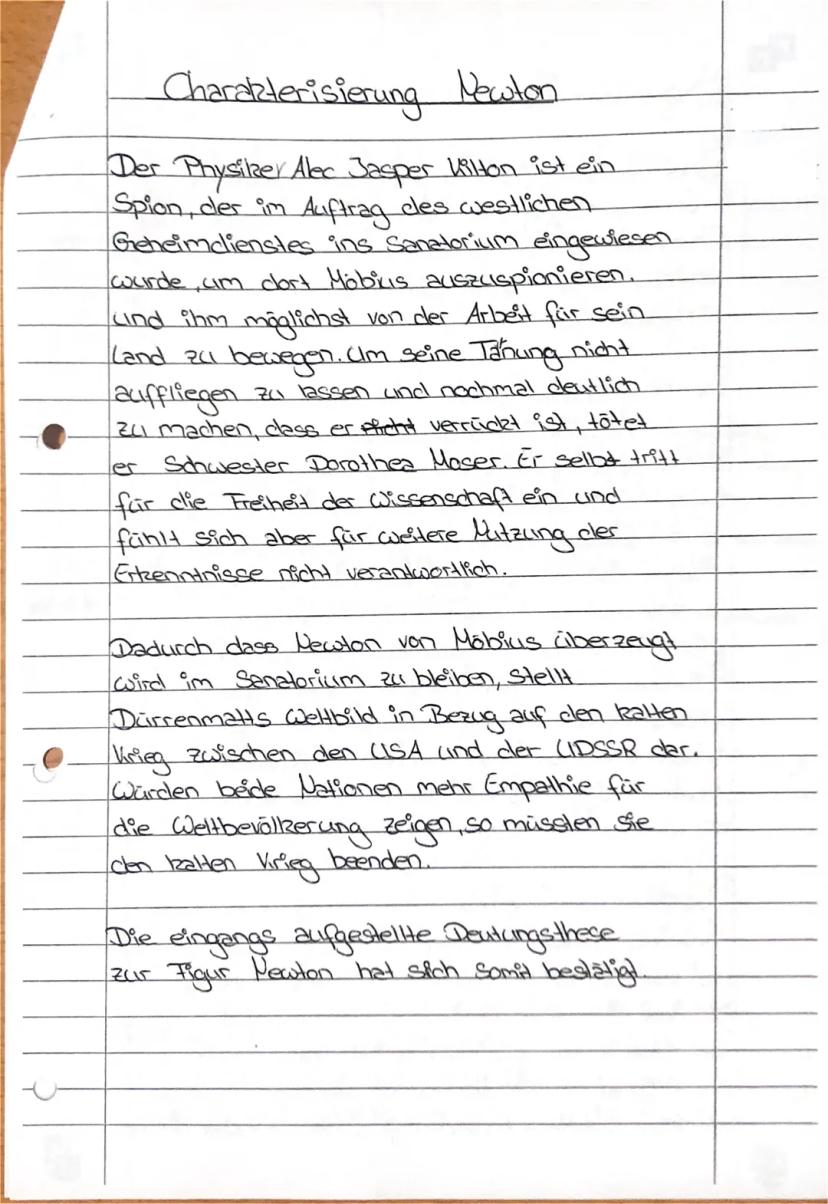 Charakterisierung Newton
Der Physiker Alec Jasper Kilton ist ein
Spion, der im Auftrag des westlichen
Geheimdienstes ins Sanatorium eingewiesen
wurde, um dort Möbius auszuspionieren.
und ihm möglichst von der Arbeit für sein
Land zu bewegen. Um seine Tarnung nicht
auffliegen zu lassen und nochmal deutlich
zu machen, dass er nicht verrückt ist, tötet
er Schwester Dorothea Moser. Er selbst tritt
für die Freiheit der Wissenschaft ein und
fühlt sich aber für weitere Nutzung der
Erkenntnisse nicht verantwortlich.
Dadurch dass Newton von Möbius überzeugt
wird im Sanatorium zu bleiben, stellt
Dürrenmatts Weltbild in Bezug auf den kalten
Krieg zwischen den USA und der UDSSR dar.
Würden beide Nationen mehr Empathie für
die Weltbevölkerung zeigen, so müssten sie
den kalten Krieg beenden.
Die eingangs aufgestellte Deutungsthese
zur Figur Newton hat sich somit bestätigt.